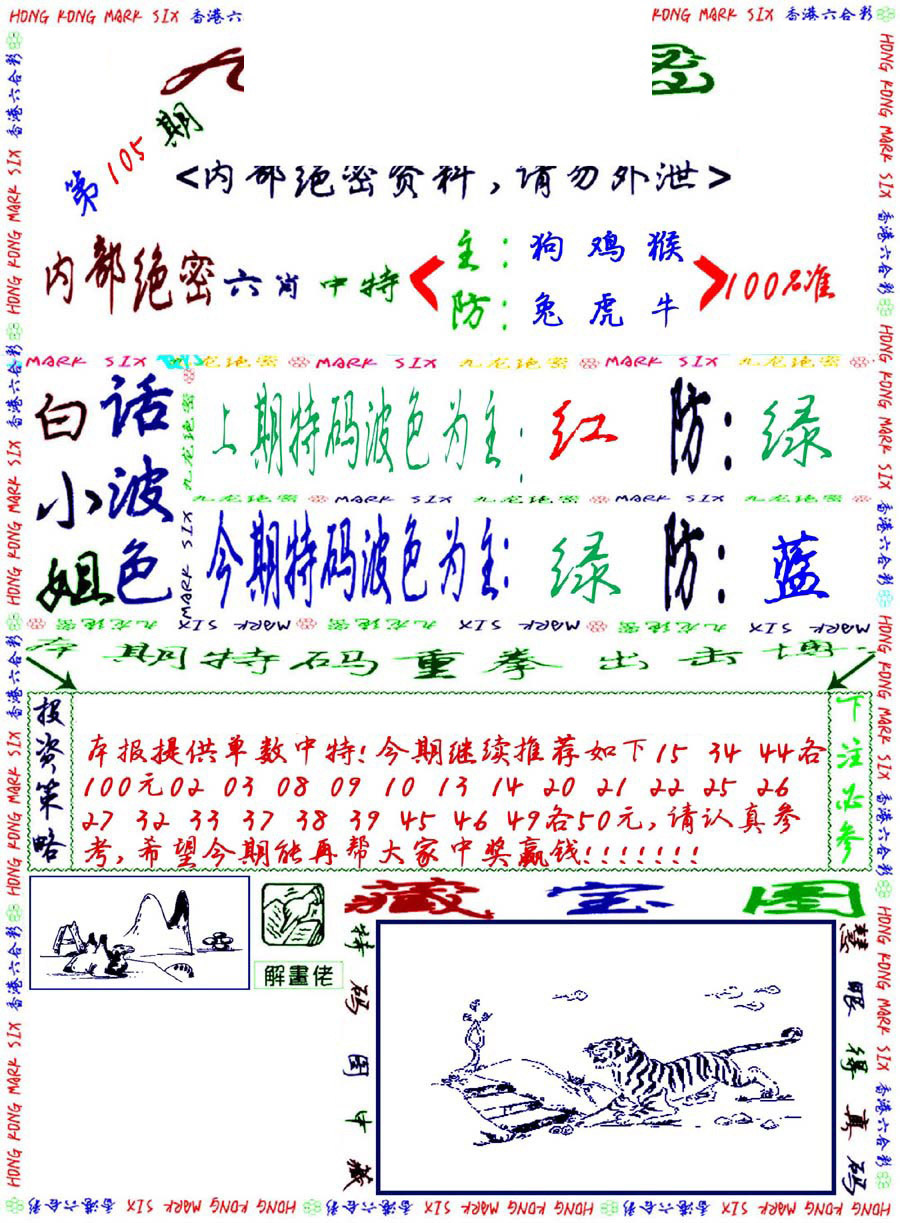 HONG KONG MARK SIX 香港六
KONG MARK SIX 香港六合彩
第105期
<内部绝密资料,请勿外泄>
内部绝密六肖中特
主:狗鸡猴
防:兔虎牛
100%准
MARK SIX 九龙绝密 MARK SIX 九龙绝密 MARK SIX 九龙绝密
白小姐
话波色
上期特码波色为主:红 防:绿
九龙绝密 MARK SIX 九龙绝密 MARK SIX 九龙绝密
今期特码波色为主:绿 防:蓝
MARK SIX 九龙绝密 MARK SIX 九龙绝密 MARK SIX
期特码重拳出击
投资策略
本报提供单数中特!今期继续推荐如下15 34 44各
100元02 03 08 09 10 13 14 20 21 22 25 26
27 32 33 37 38 39 45 46 49各50元,请认真参
考,希望今期能再帮大家中奖赢钱!!!!!!!
下注必参
藏宝图
解畫佬
特码图中藏
慧眼得真码
HONG KONG MARK SIX 香港六合彩